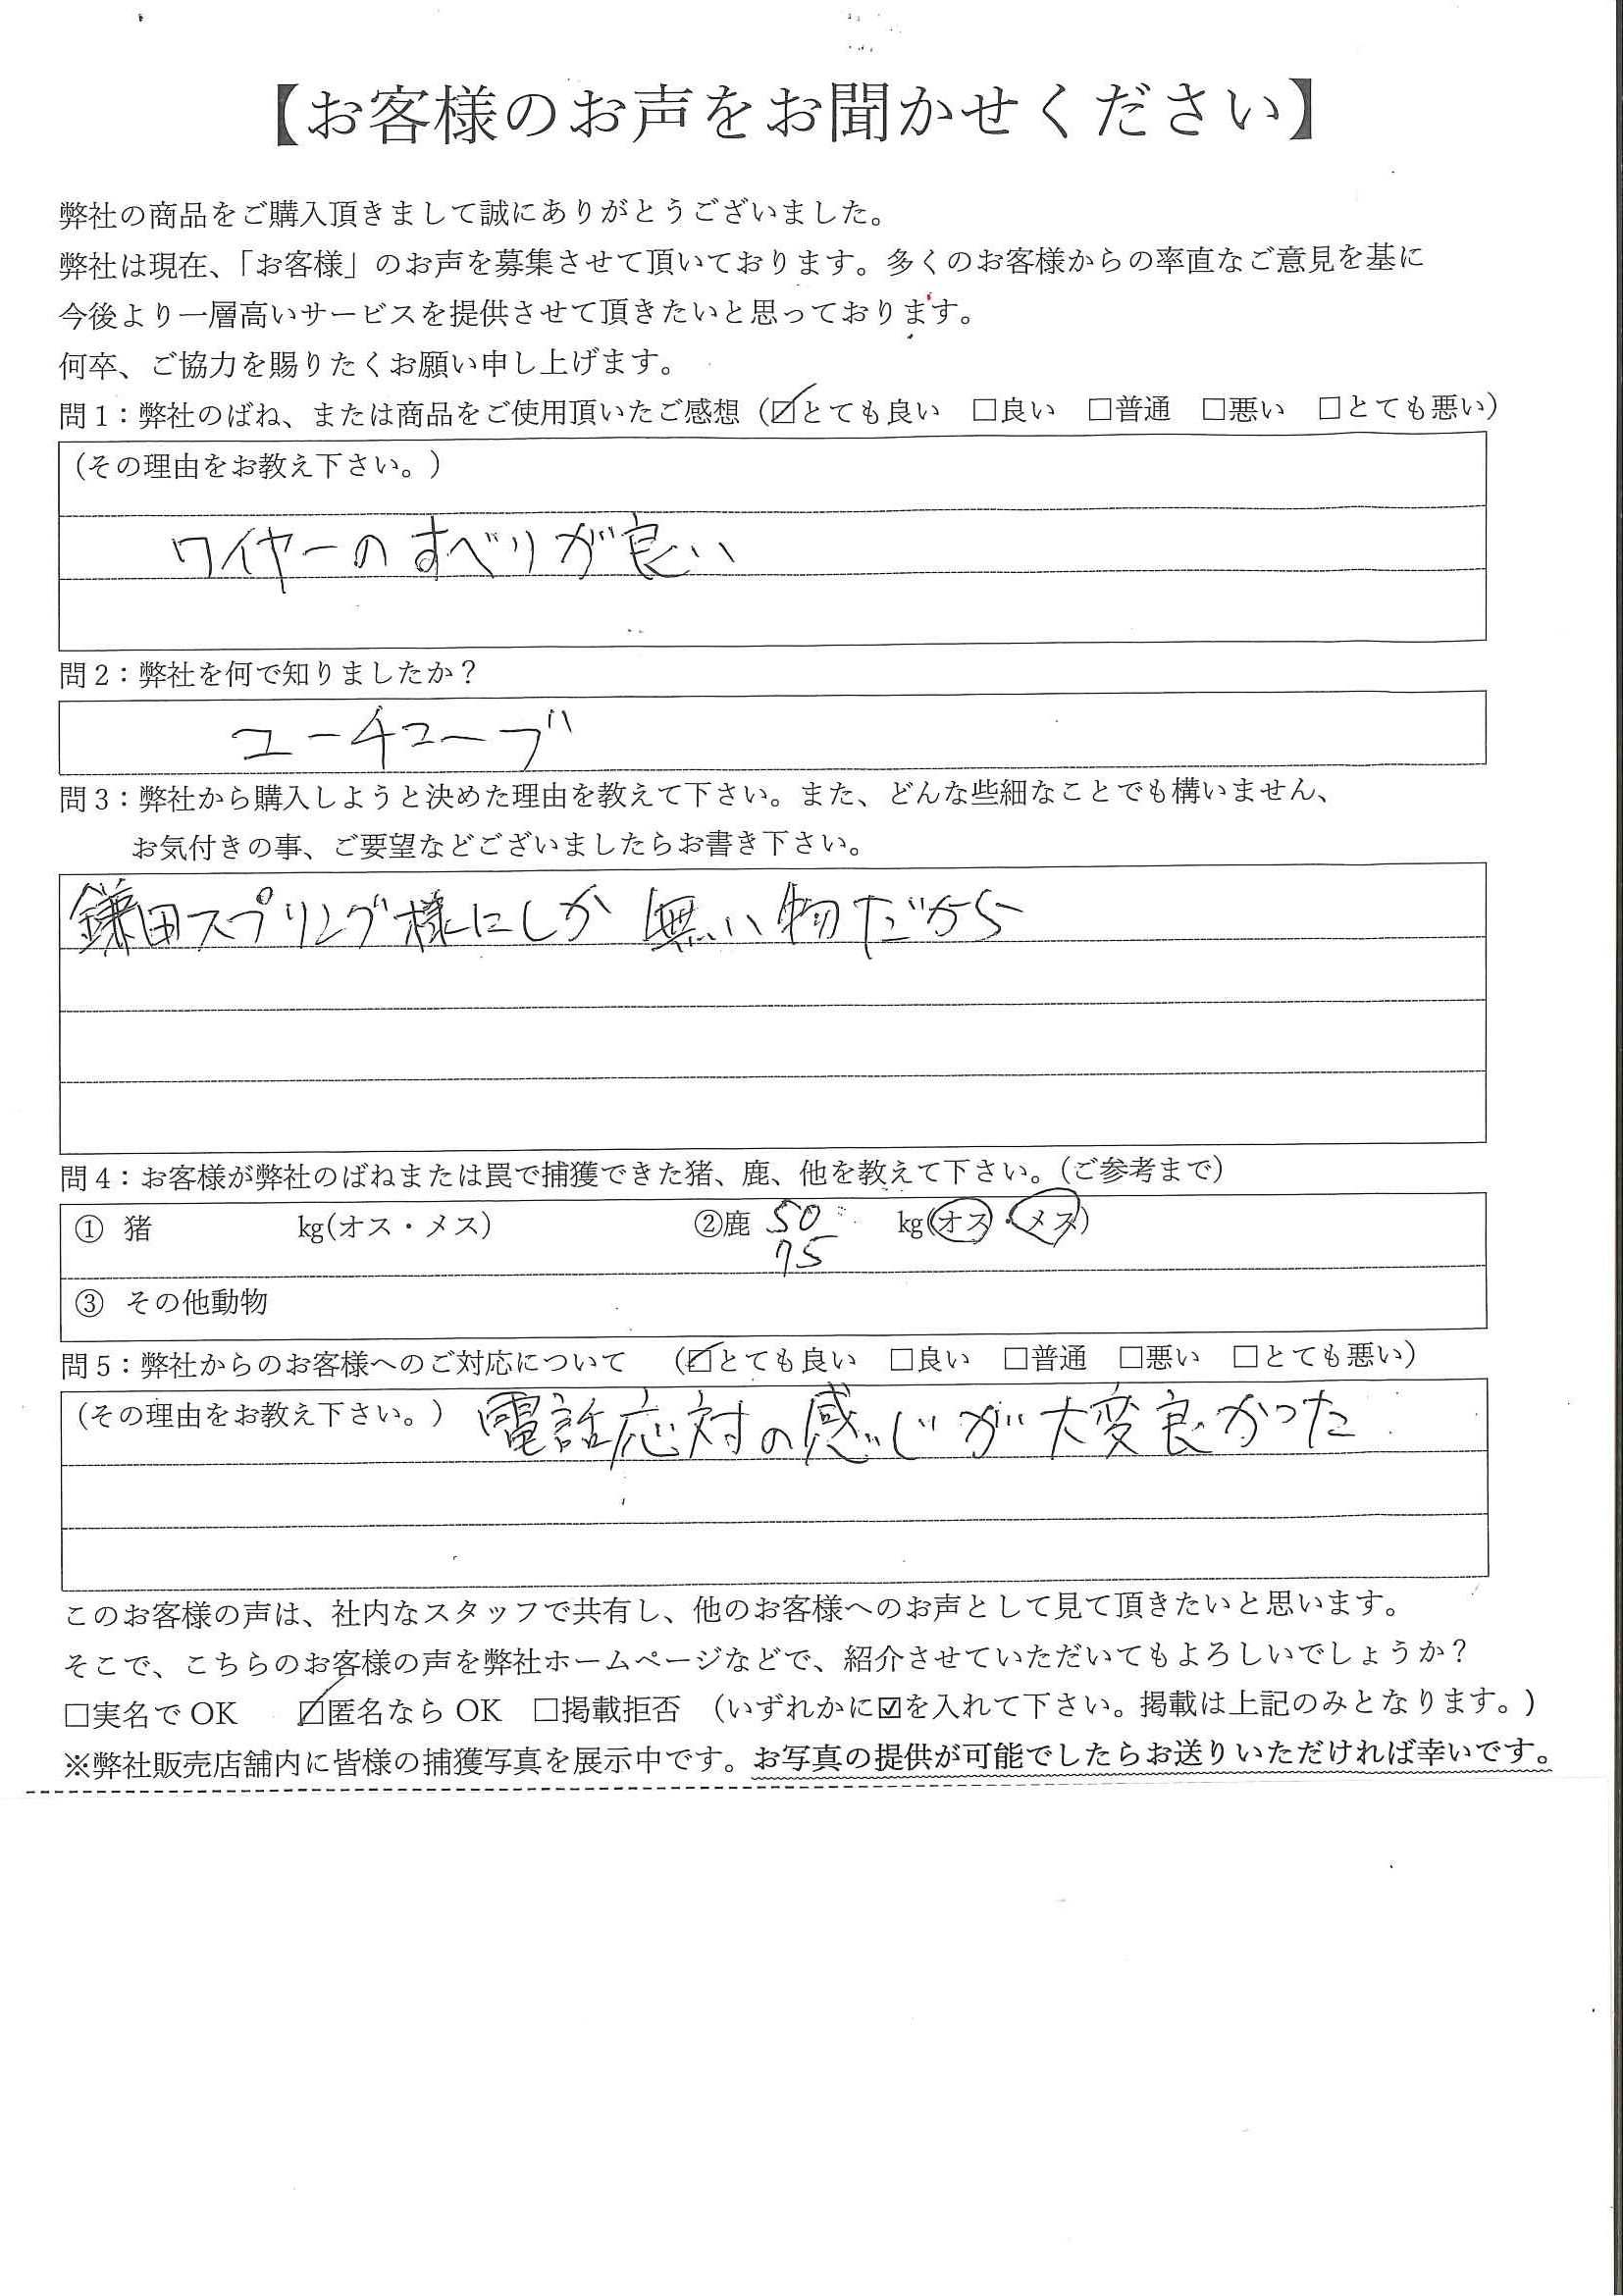 【お客様のお声をお聞かせください】
弊社の商品をご購入頂きまして誠にありがとうございました。
弊社は現在、「お客様」のお声を募集させて頂いております。多くのお客様からの率直なご意見を基に
今後より一層高いサービスを提供させて頂きたいと思っております。
何卒、ご協力を賜りたくお願い申し上げます。
問1：弊社のばね、または商品をご使用頂いたご感想（☑とても良い　□良い　□普通　□悪い　□とても悪い）
（その理由をお教え下さい。）
ワイヤーのすべりが良い
問2：弊社を何で知りましたか？
ユーチューブ
問3：弊社から購入しようと決めた理由を教えて下さい。また、どんな些細なことでも構いません、
お気付きの事、ご要望などございましたらお書き下さい。
鎌田スプリング様にしか無い物だから
問4：お客様が弊社のばねまたは罠で捕獲できた猪、鹿、他を教えて下さい。（ご参考まで）
① 猪　　　　　kg(オス・メス)　　　　　②鹿 50　　kg(オス・メス)
75
③ その他動物
問5：弊社からのお客様へのご対応について　（☑とても良い　□良い　□普通　□悪い　□とても悪い）
（その理由をお教え下さい。）電話応対の感じが大変良かった
このお客様の声は、社内なスタッフで共有し、他のお客様へのお声として見て頂きたいと思います。
そこで、こちらのお客様の声を弊社ホームページなどで、紹介させていただいてもよろしいでしょうか？
□実名でOK　　☑匿名ならOK　□掲載拒否　（いずれかに☑を入れて下さい。掲載は上記のみとなります。）
※弊社販売店舗内に皆様の捕獲写真を展示中です。お写真の提供が可能でしたらお送りいただければ幸いです。